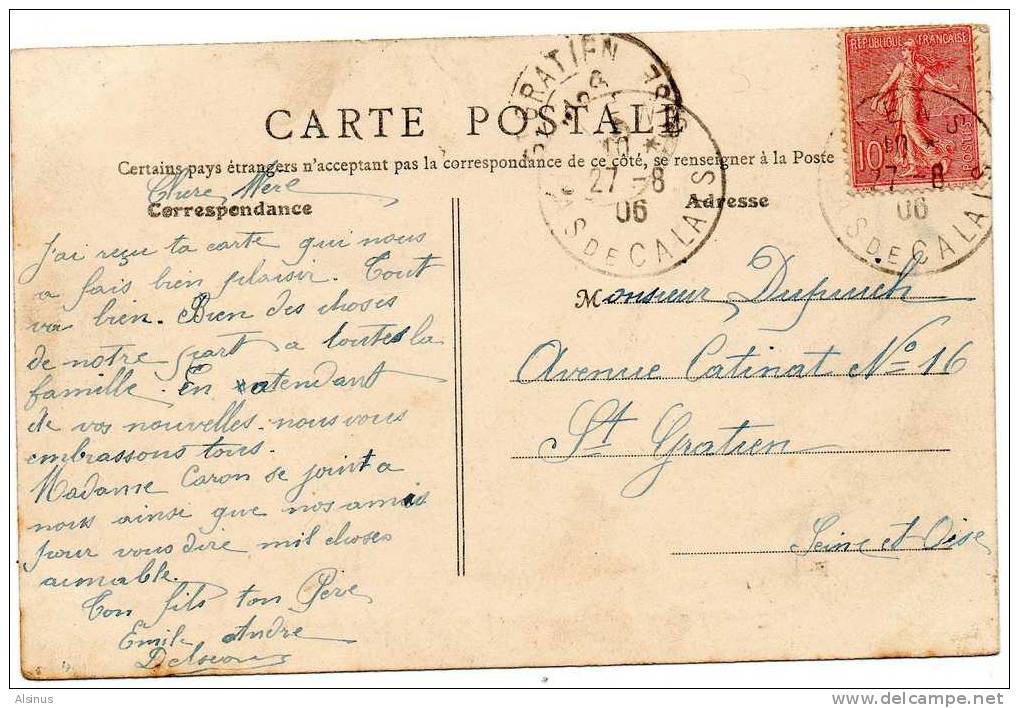 RÉPUBLIQUE FRANÇAISE
10
POSTES
CARTE POSTALE
Certains pays étrangers n'acceptant pas la correspondance de ce côté, se renseigner à la Poste
Correspondance
Adresse
GRATIEN
27 - 8
06
S DE CALAIS
27 - 8
06
S DE CALAIS
Chere Mere
J'ai reçu ta carte qui nous
a fais bien plaisir. Tout
va bien. Bien des choses
de notre part a toutes la
famille. En atendant
de vos nouvelles nous vous
embrassons tous.
Madame Caron se joint a
nous ainse que nos amis
pour vous dire mil choses
aimable.
Ton fils ton Père
Emile Andre
Monsieur Dupuich
Avenue Catinat No 16
St Gratien
Seine et Oise
Alsinus
www.delcampe.net